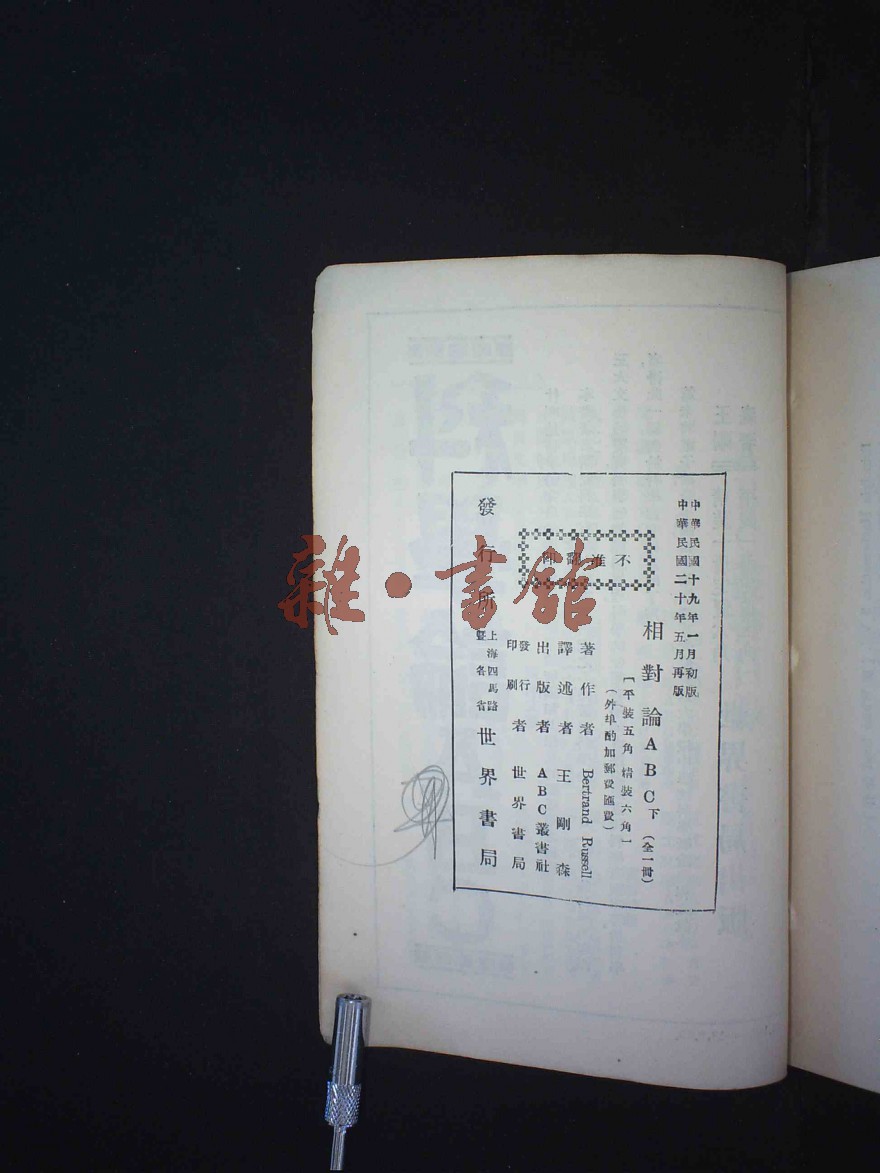 中華民國十九年一月初版
中華民國二十年五月再版
相對論ABC下(全一冊)
〔平裝五角 精裝六角〕
(外埠酌加郵費匯費)
不准翻印
著作者 Bertrand Russell
譯述者 王剛森
出版者 ABC叢書社
發行
印刷
者 世界書局
發行所
上海四馬路
暨各省
世界書局
雜·書館